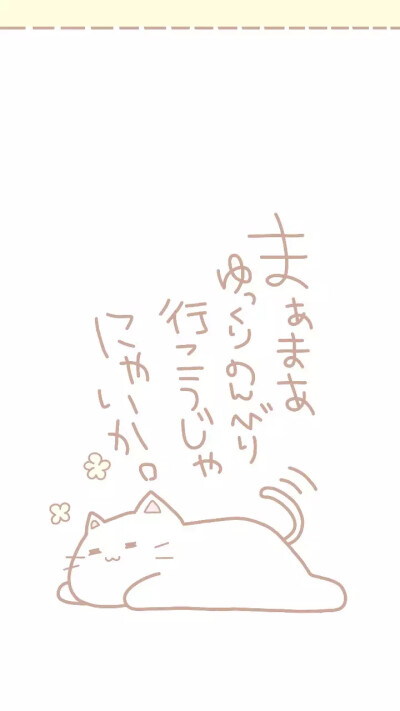 まぁまあ
ゆっくりのんびり
行こうじゃ
にゃいか。